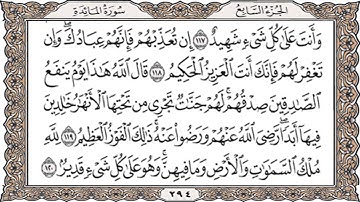 الجزء السابع سورة المائدة
وَأَنتَ عَلَىٰ كُلِّ شَىْءٍ شَهِيدٌ ١١٧ إِن تُعَذِّبْهُمْ فَإِنَّهُمْ عِبَادُكَ ۖ وَإِن
تَغْفِرْ لَهُمْ فَإِنَّكَ أَنتَ الْعَزِيزُ الْحَكِيمُ ١١٨ قَالَ اللَّهُ هَٰذَا يَوْمُ يَنفَعُ
الصَّٰدِقِينَ صِدْقُهُمْ ۚ لَهُمْ جَنَّٰتٌ تَجْرِى مِن تَحْتِهَا الْأَنْهَٰرُ خَٰلِدِينَ
فِيهَا أَبَدًا ۚ رَّضِىَ اللَّهُ عَنْهُمْ وَرَضُوا۟ عَنْهُ ۚ ذَٰلِكَ الْفَوْزُ الْعَظِيمُ ١١٩ لِلَّهِ
مُلْكُ السَّمَٰوَٰتِ وَالْأَرْضِ وَمَا فِيهِنَّ ۚ وَهُوَ عَلَىٰ كُلِّ شَىْءٍ قَدِيرٌۢ ١٢٠
٢٩٤